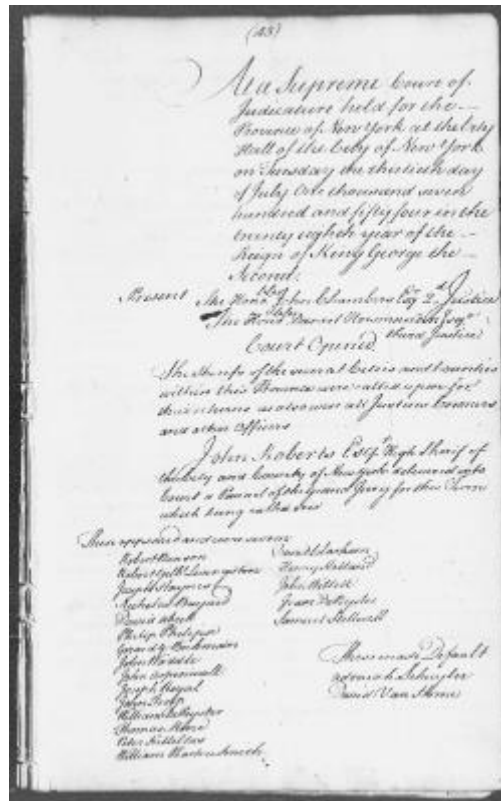 (43)
At a Supreme Court of
Judicature held for the
Province of New York at the City
Hall of the City of New York
on Tuesday the thirtieth day
of July One thousand seven
hundred and fifty four in the
twenty eighth year of the
Reign of King George the
Second.
Present The Hono.ble John Chambers Esq.r 2.d Justice
The Hono.ble Daniel Horsmanden Esq.r
third Justice
Court Opened.
The Sheriffs of the several Cities and Counties
within this Province were called upon for
their returns as also were all Justices Coroners
and other Officers
John Roberts Esq.r High Sherif of
the City and County of New York delivered into
Court a Pannel of the grand Jury for this Term
which being called over
These appeared and were sworn
Robert Benson
Robert Gilb.t Livingston
Joseph Haynes
Nicholas Bayard
Philip
Gerard G. Beekman
John
John Aspinwall
Joseph Royal
John Troup
William DePeyster
Thomas
Peter Kettletas
William
David Clarkson
Henry Holland
John Willett
DePeyster
Samuel Stillwell
These made Default
Schuyler
David Van Horne